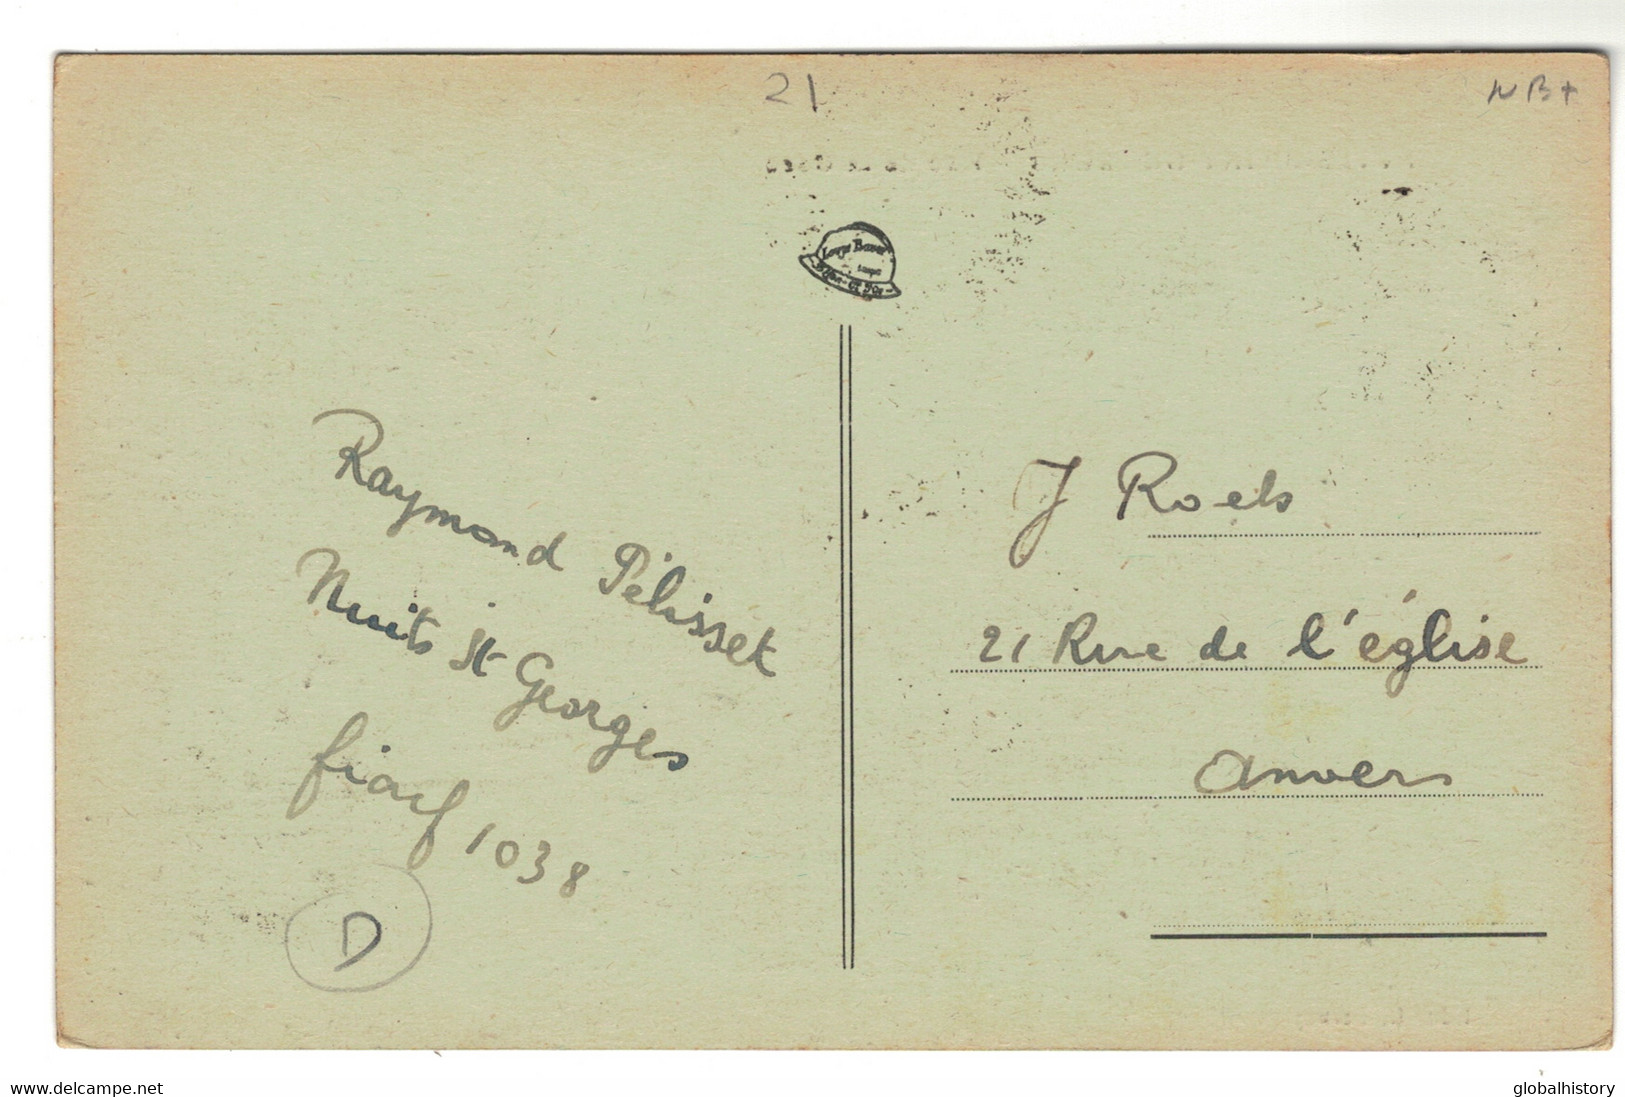 21
NB+
Louys Bauer
Dijon
Raymond Pélisset
Nuits St Georges
fiacf 1038
D
J Roels
21 Rue de l'église
Anvers
www.delcampe.net
globalhistory